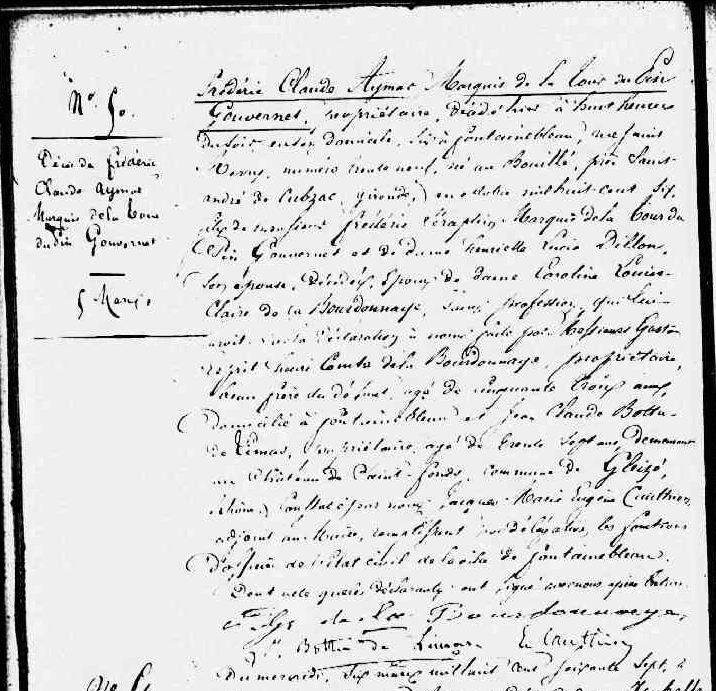 N° 50.
Décès de frédéric
Claude Aymar
Marquis de la Tour
du Pin Gouvernet
5 Mars
Frédéric Claude Aymar Marquis de la Tour du Pin
Gouvernet, propriétaire, décédé hier à huit heures
du soir en son domicile, sis à fontainebleau, rue saint
numéro trente neuf, né au Bouilh, près Saint-
andré de Cubzac, (gironde,) en octobre mil huit cent six,
fils de monsieur frédéric Séraphin Marquis de la Tour du
Pin Gouvernet et de dame henriette Lucie Dillon,
son épouse, décédés, époux de dame Caroline Louise
Claire de la Bourdonnaye, sans profession, qui lui
survit. sur la déclaration à nous faite par Messieurs
esprit henri Comte de la Bourdonnaye, propriétaire,
beau frère du défunt, agé de cinquante trois ans,
domicilié à fontainebleau et Jean Claude Bottu-
de Limas, propriétaire, agé de trente sept ans demeurant
au Château de Saint-fonds, commune de Gleizé,
(rhône.) Constaté par nous Jacques Marie Eugène
adjoint au Maire, remplissant par délégation les fonctions
d'officier de l'état civil de la ville de fontainebleau.
Dont acte que les déclarants ont signé avec nous après lecture
de la Bourdonnaye
Bottu de Limas
Du mercredi, six mars mil huit cent soixante sept, à